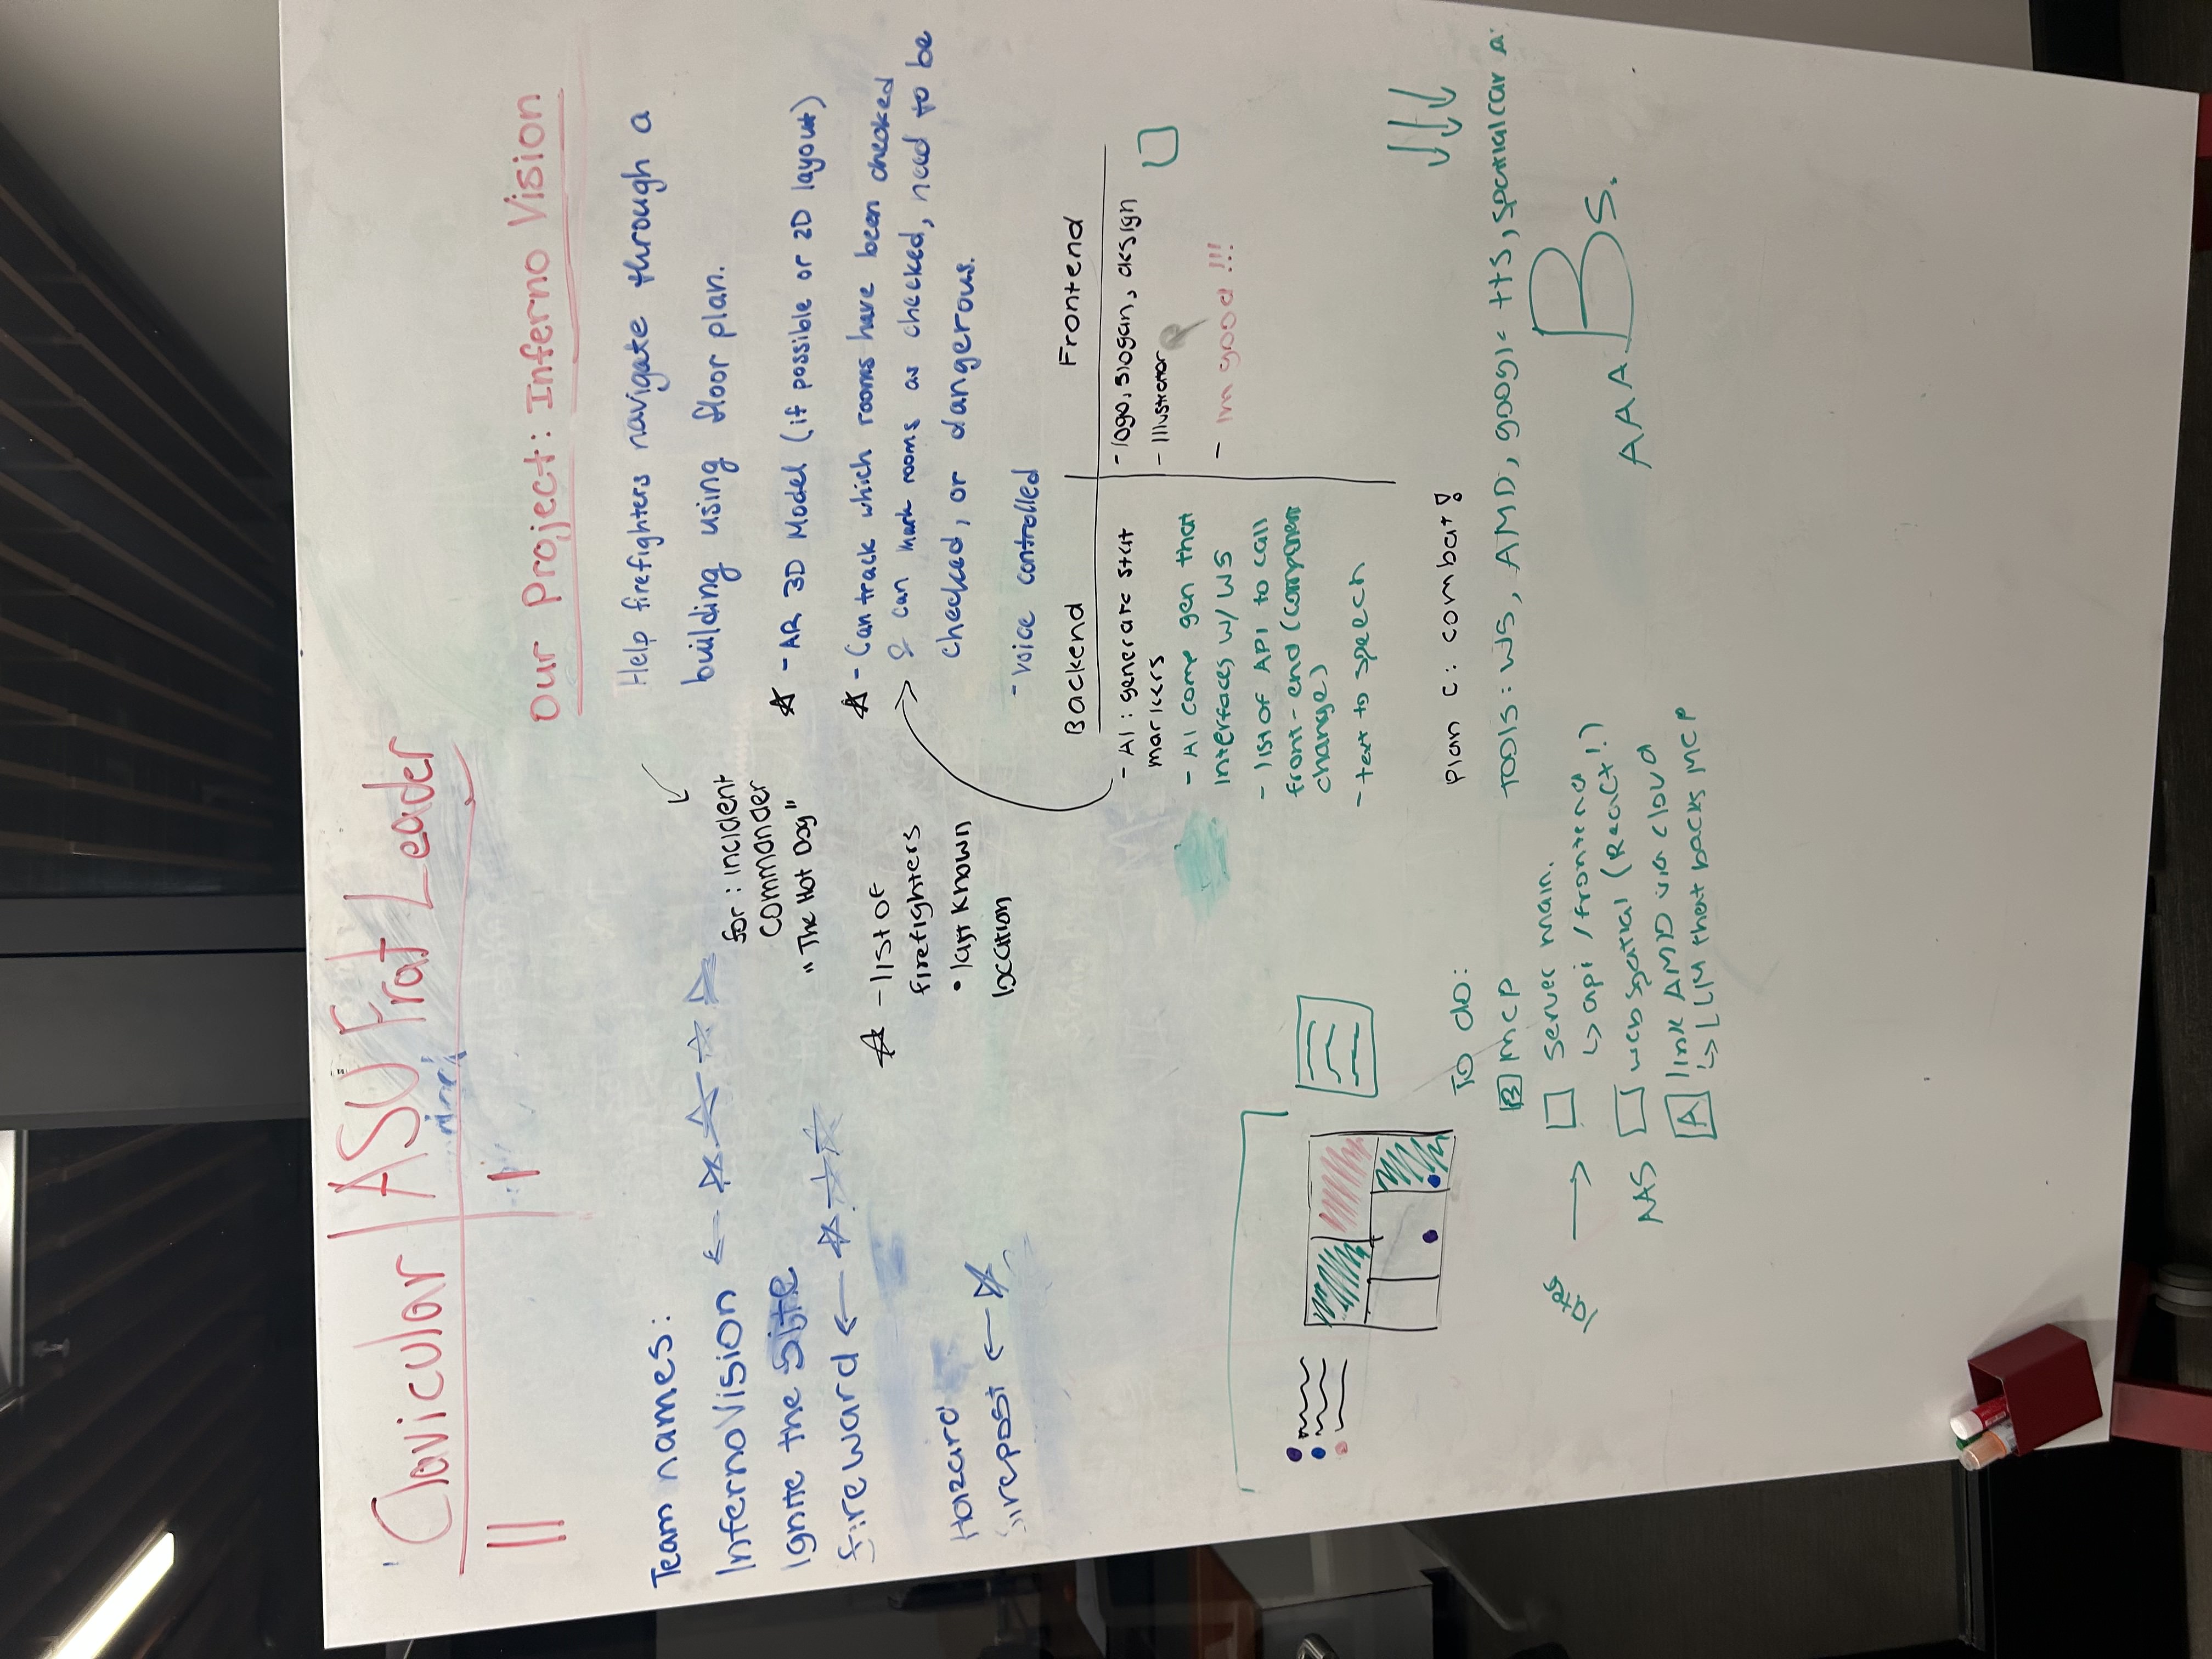 Clavicular | ASU Frat Leader
Our Project: Inferno Vision
Help firefighters navigate through a
building using floor plan.
- AR 3D Model (if possible or 2D layout)
- Can track which rooms have been checked
& can mark rooms as checked, need to be
checked, or dangerous.
- voice controlled
for: incident
commander
"The Hot Dog"
- list of
firefighters
• last known
location
Team names:
InfernoVision
Ignite the site
fireward
Hazard
firepost
Backend
Frontend
- AI: generate stat
markers
- AI comp gen that
interfaces w/ WS
- list of API to call
front-end (component
change)
- text to speech
- logo, slogan, design
- Illustrator
- im good !!!
plan c: combat!
TOOLS: WS, AMD, google tts, spatialcar
AAA
Bs.
To do:
B mcp
server main.
↳ api / frontend
web spatial (React!)
NAS
A link AMD via cloud
↳ LLM that backs MCP